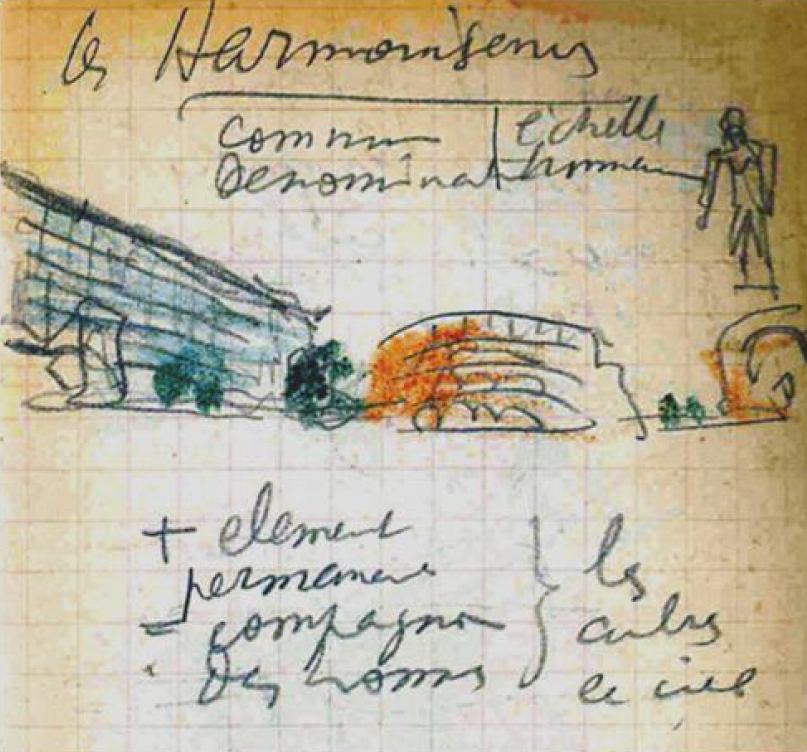 les Harmoniseurs
commun
Denominat
échelle
humaine
+ element
permanent
= compagnon
des hommes
les
arbres
le ciel